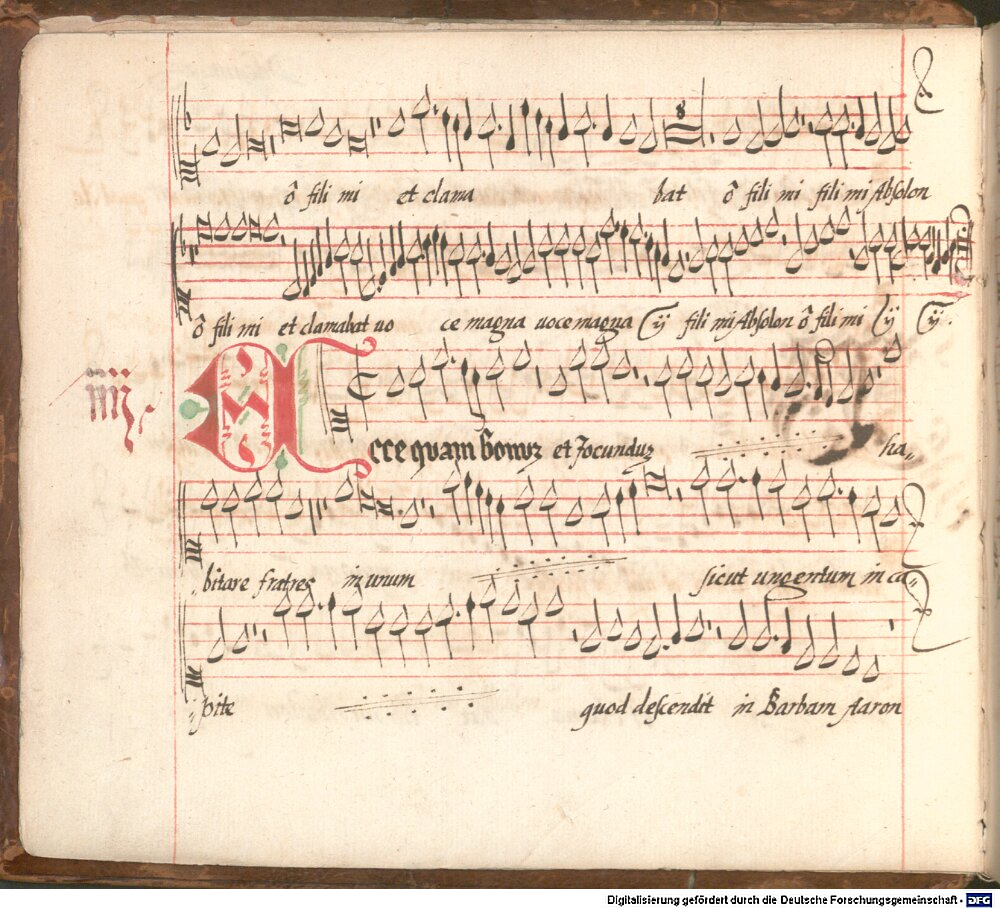 ô fili mi et clama bat ô fili mi fili mi Absolon
ô fili mi et clamabat uo ce magna uoce magna ij fili mi Absolon ô fili mi ij ij.
iiij.
Ecce quam bonuz et Jocunduz ha„
„bitare fratres in unum sicut ungentum in ca„
„pite quod descendit in Barbam Aaron
Digitalisierung gefördert durch die Deutsche Forschungsgemeinschaft - DFG